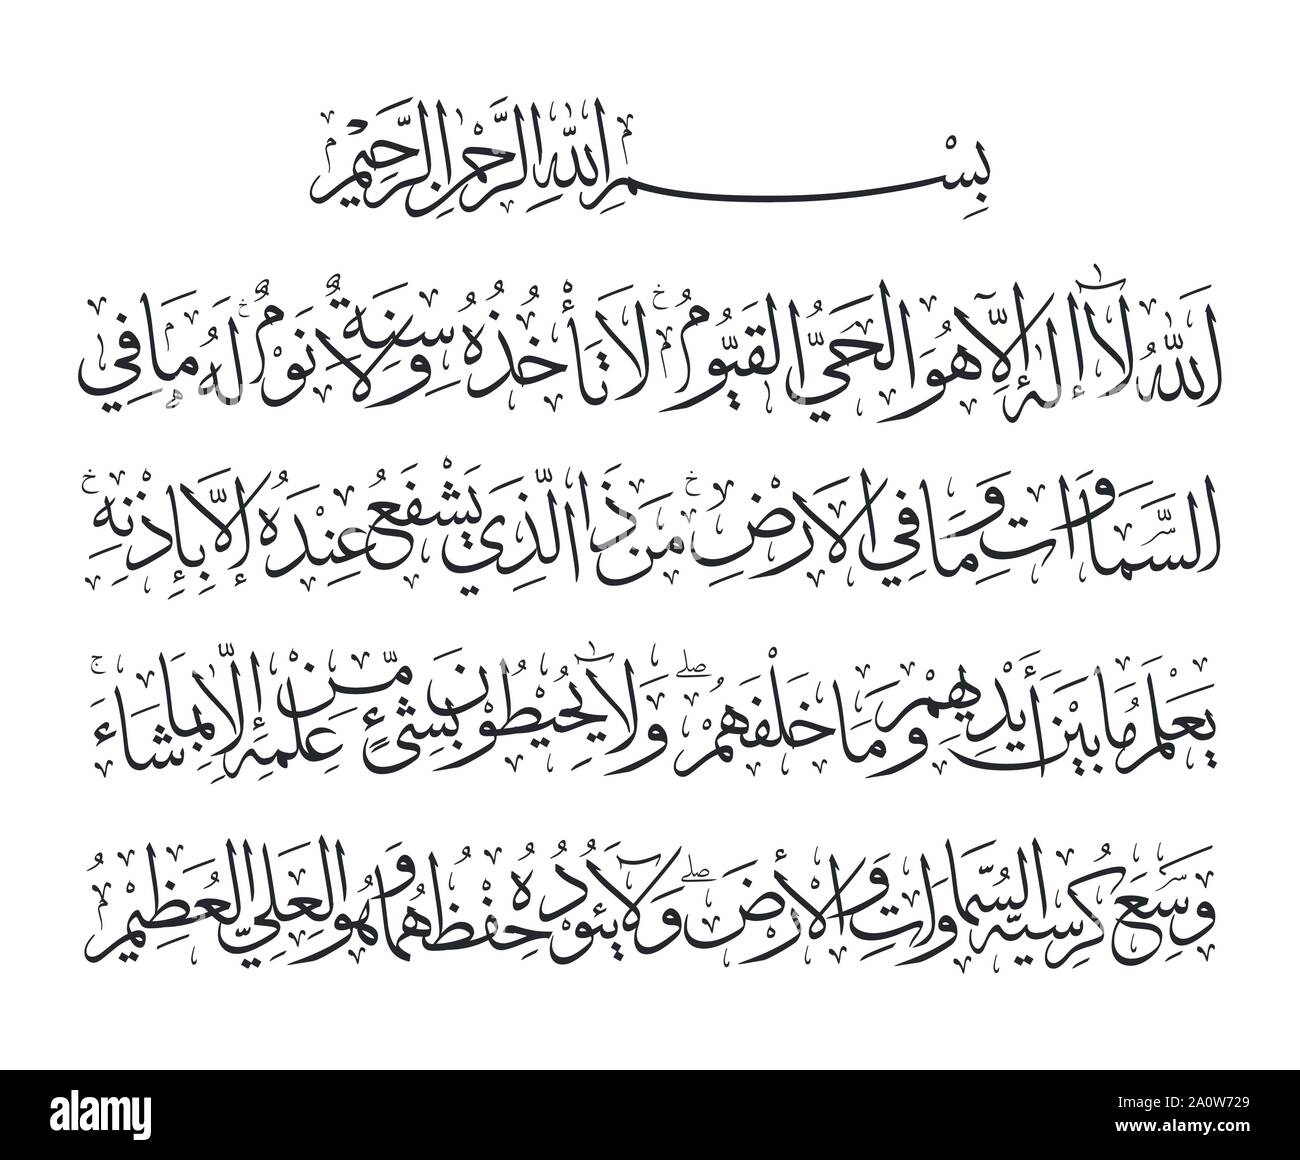 بِسْمِ اللهِ الرَّحْمٰنِ الرَّحِيْمِ
اَللهُ لَآ اِلٰهَ اِلَّا هُوَ الْحَيُّ الْقَيُّوْمُ لَا تَأْخُذُهُ سِنَةٌ وَلَا نَوْمٌ لَهُ مَا فِي
السَّمَاوَاتِ وَمَا فِي الْاَرْضِ مَنْ ذَا الَّذِي يَشْفَعُ عِنْدَهُ إِلَّا بِإِذْنِهِ
يَعْلَمُ مَا بَيْنَ أَيْدِيهِمْ وَمَا خَلْفَهُمْ وَلَا يُحِيْطُوْنَ بِشَيْءٍ مِّنْ عِلْمِهِ إِلَّا بِمَا شَاءَ
وَسِعَ كُرْسِيُّهُ السَّمَاوَاتِ وَالْأَرْضَ وَلَا يَئُوْدُهُ حِفْظُهُمَا وَهُوَ الْعَلِيُّ الْعَظِيْمُ
alamy
alamy
Image ID: 2A0W729
www.alamy.com